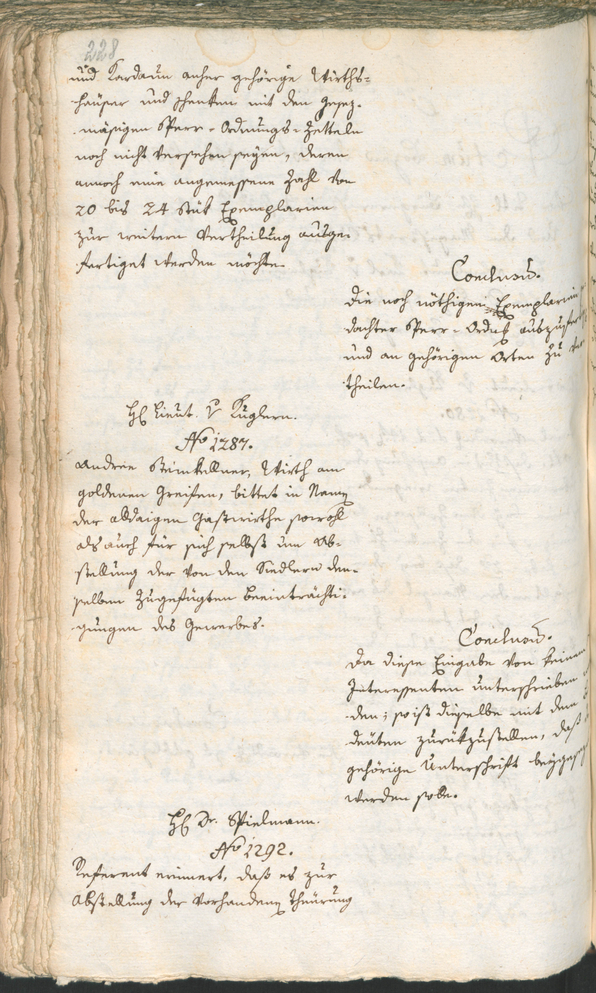 228
und Kardaun anher gehörige Wirths-
häuser und schenken mit den gesez-
mäsigen Sperr-Ordnungs-Zetteln
noch nicht versehen seyen, deren
annoch eine angemessene Zahl von
20 bis 24 Stük Exemplarien
zur weitern Vertheilung ausge-
fertiget werden möchte.
Conclusum.
die noch nöthigen Exemplarien
dachter Sperr-Ordng auszufer
und an gehörigen Orten zu ver
theilen.
H. Lieut. v Kuglern.
No 1287.
Andree Steinkellner, Wirth am
goldenen Greifen, bittet in Namen
der alldaigen Gastwirthe sowohl
als auch für sich selbst um Ab-
stellung der von den Siedlern den-
selben zugefügten Beeinträchti-
gungen des Gewerbes.
Conclusum.
Da diese Eingabe von keinem
Interessenten unterschrieben
den; so ist dieselbe mit dem
deuten zurükzustellen, daß
gehörige Unterschrift beygesez
werden solle.
H. Dr. Spielmann.
No 1292.
Referent erinnert, daß es zur
Abstellung der vorhandenen Theurung